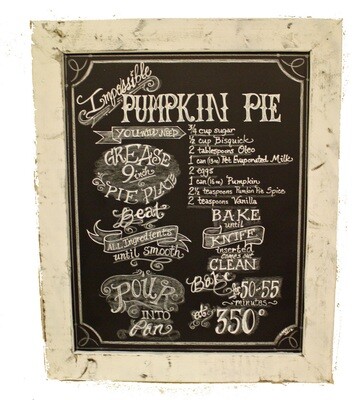 Impossible
PUMPKIN PIE
YOU WILL NEED
3/4 cup sugar
1/2 cup Bisquick
2 tablespoons Oleo
1 can (13oz) Pet Evaporated Milk
2 eggs
1 can (16oz) Pumpkin
2 1/2 teaspoons Pumpkin Pie Spice
2 teaspoons Vanilla
GREASE
9 inch
PIE PLATE
Beat
ALL Ingredients
until smooth
POUR
INTO
Pan
BAKE
until
KNIFE
inserted
comes out
CLEAN
Bake
for 50-55
minutes
at 350°